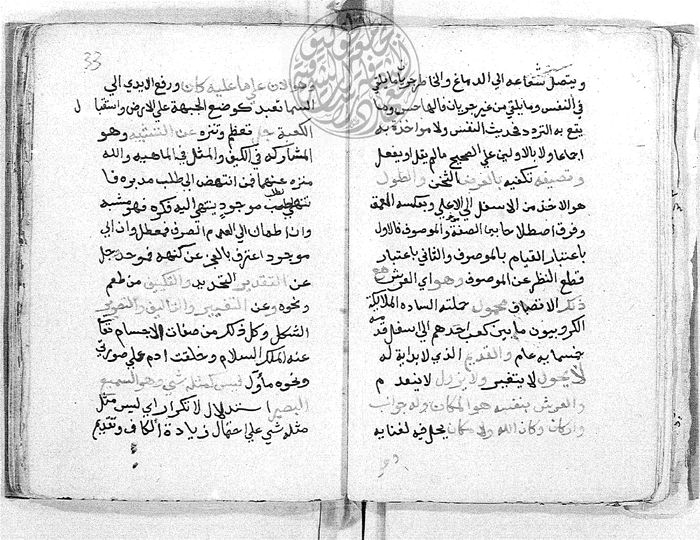 ويتصل شعاعه الى الدماغ والخاطر جريان ما يلقى
في النفس وما يلقى من غير جريان فالهاجس وما
يقع به التردد فحديث النفس ولا مواخذة به
اجماعا ولا بالاولين على الصحيح مالم يقل او يفعل
وتصفيه تكفيه بالعرض الثخن والطول
هو الاخذ من الاسفل الى الاعلى وبعكسه العمق
وفرق اصطلاحا بين الصفة والموصوف فالاول
باعتبار القيام بالموصوف والثاني باعتبار
قطع النظر عن الموصوف وهو اي العرش مع
ذكر الاتصاف محمول حملته السادة الملائكة
الكروبيون ما بين كعب احدهم الى اسفل قدمه
خمسماية عام والقديم الذي لا بداية له
لا يحول لا يتغير ولا يزول لا ينعدم
والعرش بنفسه هو المكان وله جوانب
واركان وكان الله ولا مكان يحل فيه لغنايه
33
وهو الان على ما عليه كان ورفع الايدي الى
السما تعبد كوضع الجبهة على الارض واستقبال
الكعبة جل تعظم وتنزه عن التشبيه وهو
المشاركه في الكيف والمثل في الماهيه والله
منزه عنهما فمن انتهض الى طلب مدبره فا
نتهى لطلب موجود ينتهي اليه فكره فهو مشبه
وان اطمان الى العدم الصرف فمعطل وان الى
موجود اعترف بالعجز عن كنهه فموحد جل
عن التقدير التحديد والتكييف من طعم
ونحوه وعن التغيير والتاليف والتصوير
التشكل وكل ذلك من صفات الاجسام تعالى
عنه الملك السلام وخلقت ادم على صورتي
ونحوه ماول ليس كمثله شي وهو السميع
البصير استدلال لا تكرار اي ليس مثل
مثله شي على احتمال زيادة الكاف وتقديم